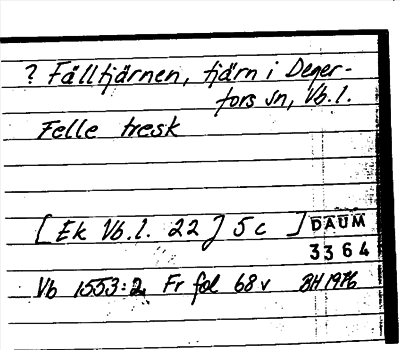 ? Fälltjärnen, tjärn i Deger-
fors sn, Vb.l.
Felle tresk
[Ek Vb.l. 22] 5c ] DAUM
3364
Vb 1553:2, Fr fol 68v BH 1976